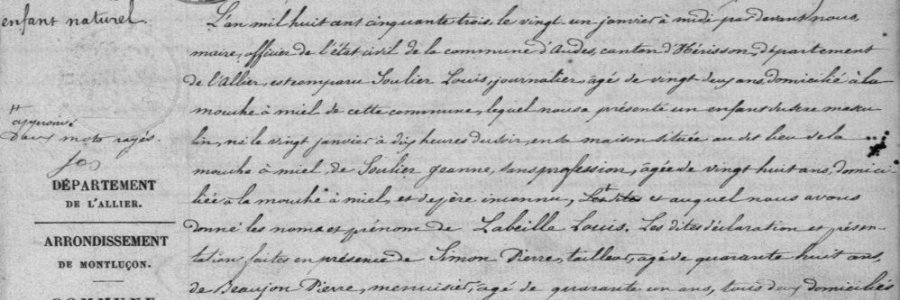 enfant naturel.
L'an mil huit cent cinquante trois, le vingt un janvier à midi par devant nous
maire, officier de l'état civil de la commune d'Audes, canton d'Hérisson, département
de l'Allier, est comparu Soulier Louis, journalier, âgé de vingt deux ans, domicilié à la
mouche à miel de cette commune, lequel nous a présenté un enfant du sexe mascu
lin, né le vingt janvier à dix heures du soir, en sa maison située au dit lieu de la
mouche à miel, de Soulier Jeanne, sans profession, âgée de vingt huit ans, domici-
liée à la mouche à miel, et de père inconnu, et auquel nous avons
donné les noms et prénom de Labeille Louis. Les dites déclaration et présen-
tation faites en présence de Simon Pierre, tailleur, âgé de quarante huit ans,
de Beaujon Pierre, menuisier, âgé de quarante un ans, tous deux domiciliés
approuvé
Deux mots rayés
DÉPARTEMENT
DE L'ALLIER.
ARRONDISSEMENT
DE MONTLUÇON.
COMMUNE